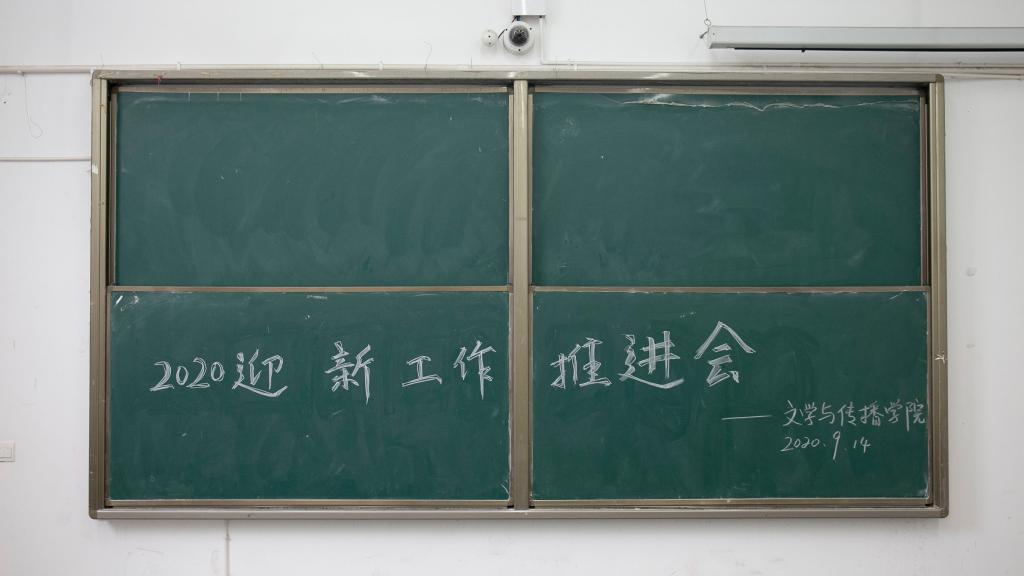 2020迎新工作推进会
——文学与传播学院
2020.9.14